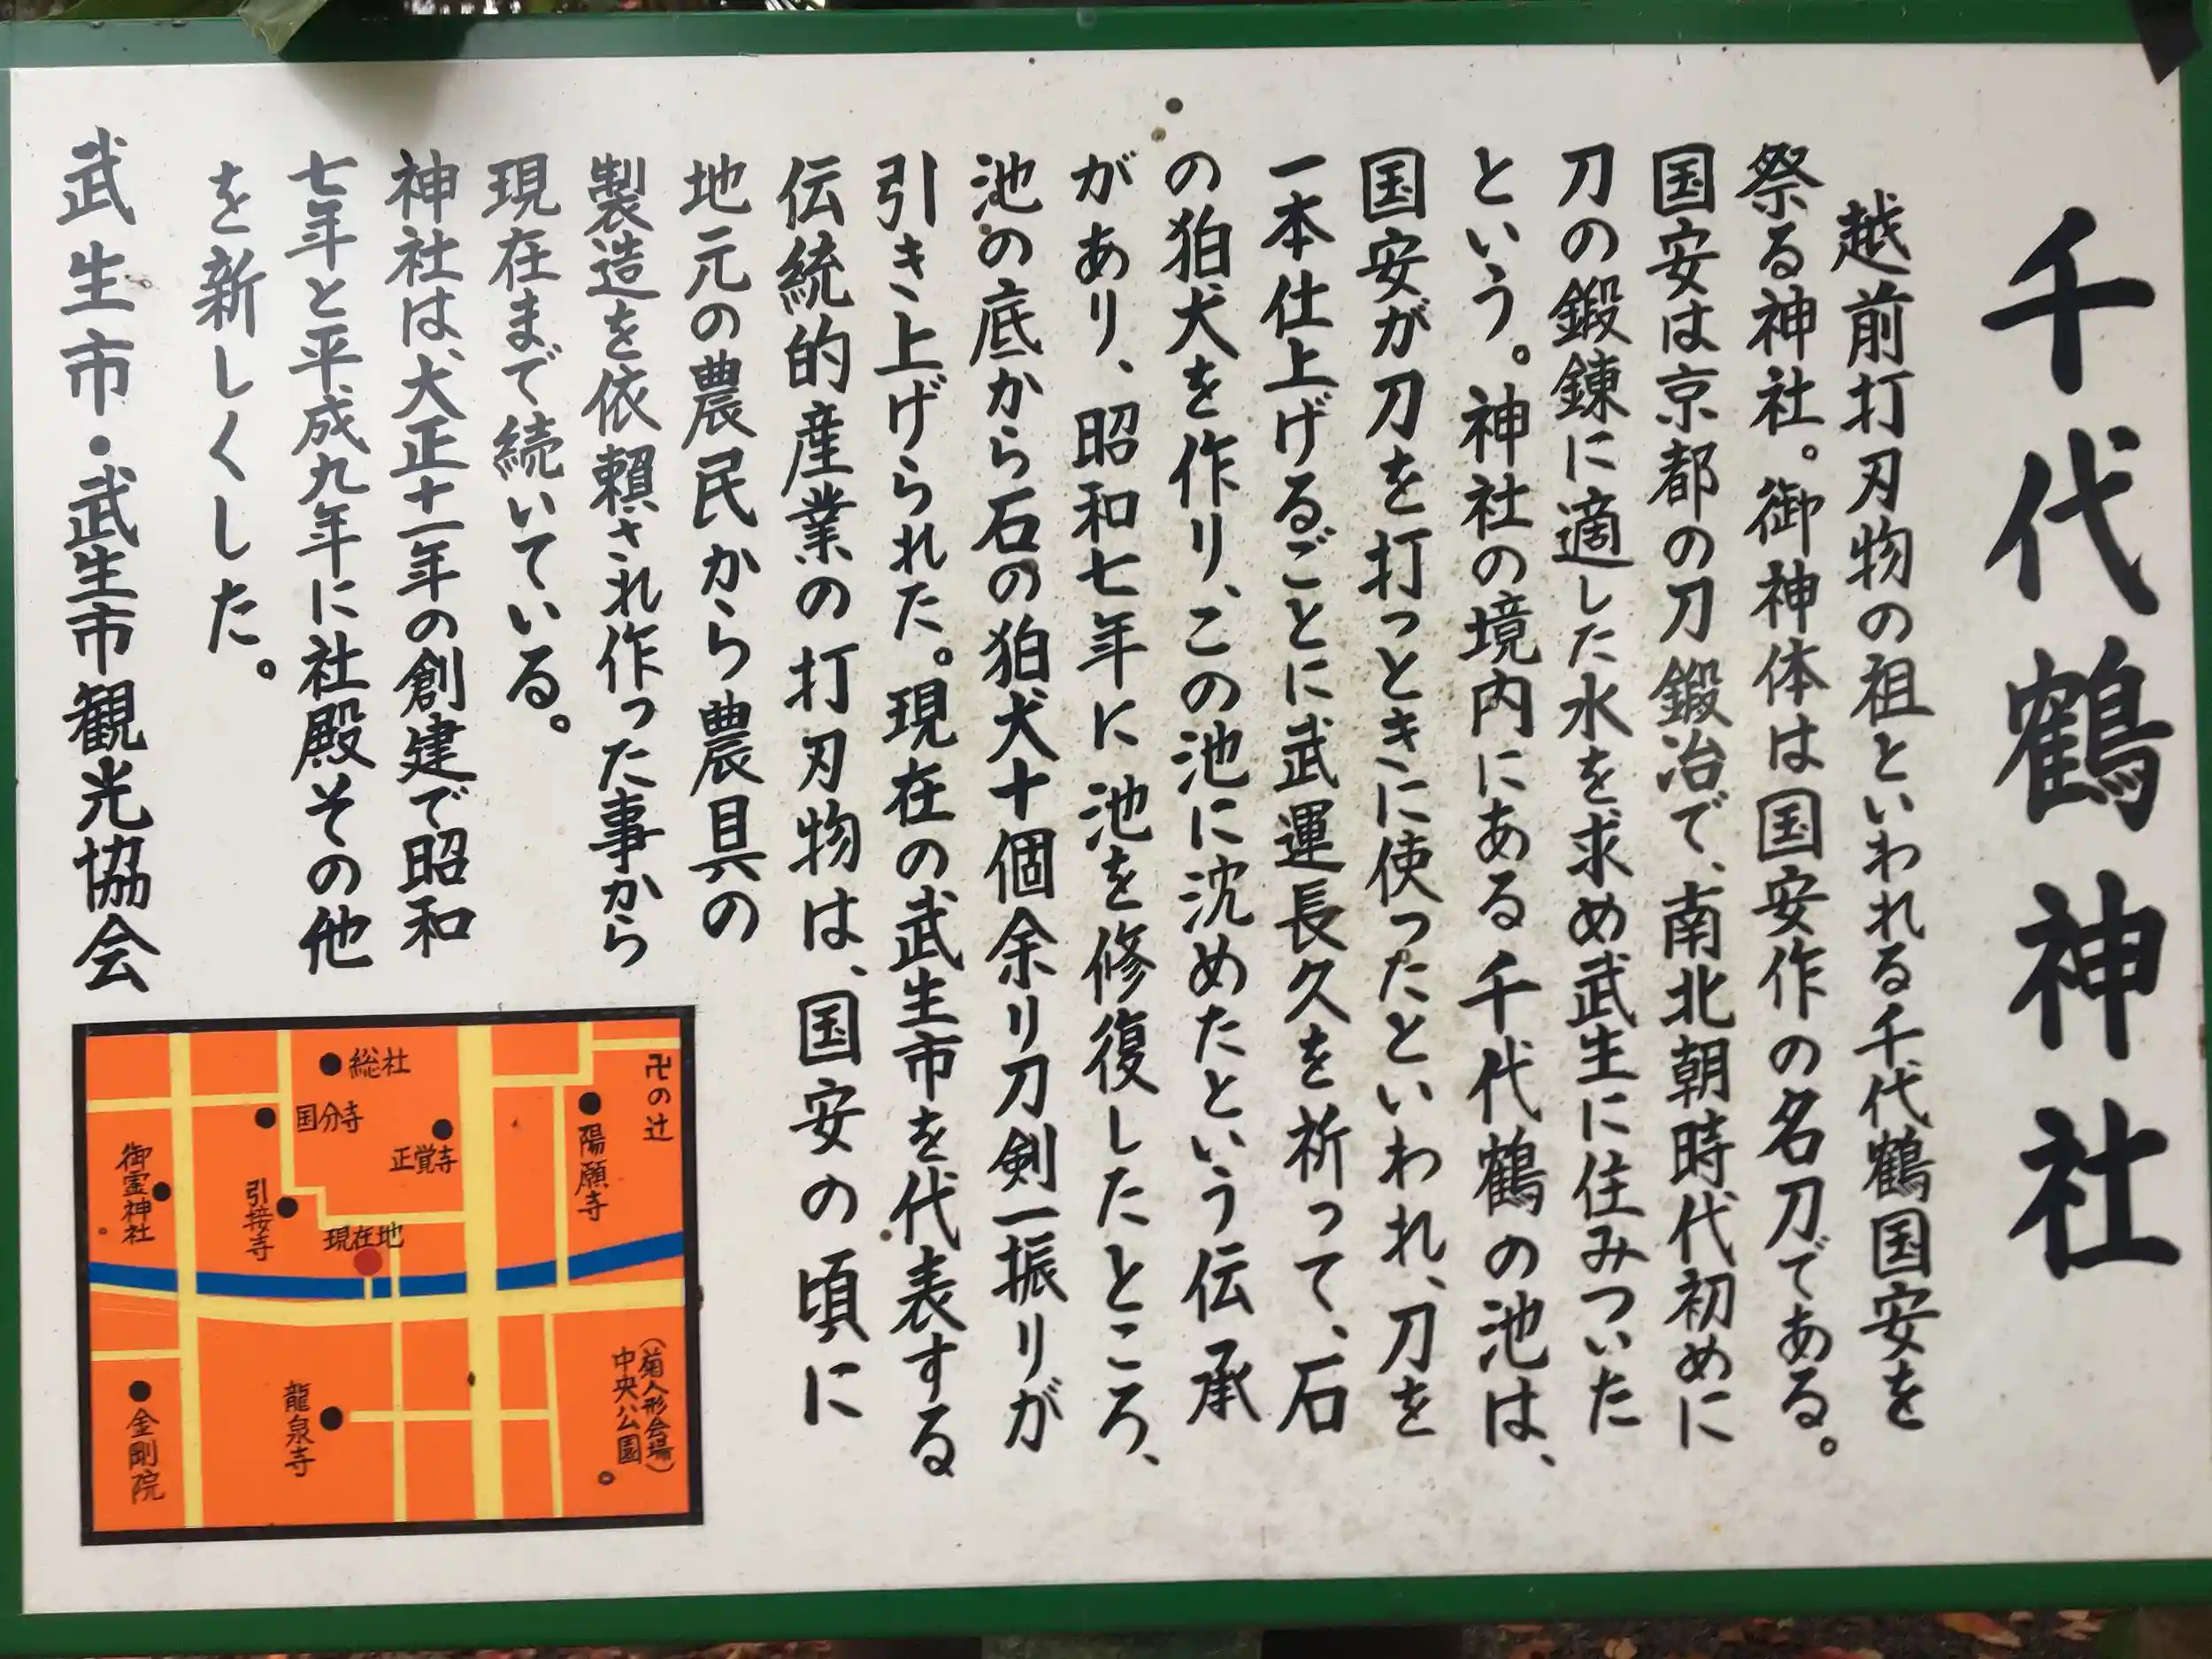 千代鶴神社
越前打刃物の祖といわれる千代鶴国安を
祭る神社。御神体は国安作の名刀である。
国安は京都の刀鍛冶で、南北朝時代初めに
刀の鍛錬に適した水を求め武生に住みついた
という。神社の境内にある千代鶴の池は、
国安が刀を打っときに使ったといわれ、刀を
一本仕上げるごとに武運長久を祈って、石
の狛犬を作り、この池に沈めたという伝承
があり、昭和七年に池を修復したところ、
池の底から石の狛犬十個余り刀剣一振りが
引き上げられた。現在の武生市を代表する
伝統的産業の打刃物は、国安の頃に
地元の農民から農具の
製造を依頼され作った事から
現在まで続いている。
神社は、大正十一年の創建で昭和
七年と平成九年に社殿その他
を新しくした。
武生市・武生市観光協会
卍の辻
陽願寺
総社
国分寺
正覚寺
御霊神社
引接寺
現在地
(菊人形会場)
中央公園
龍泉寺
金剛院